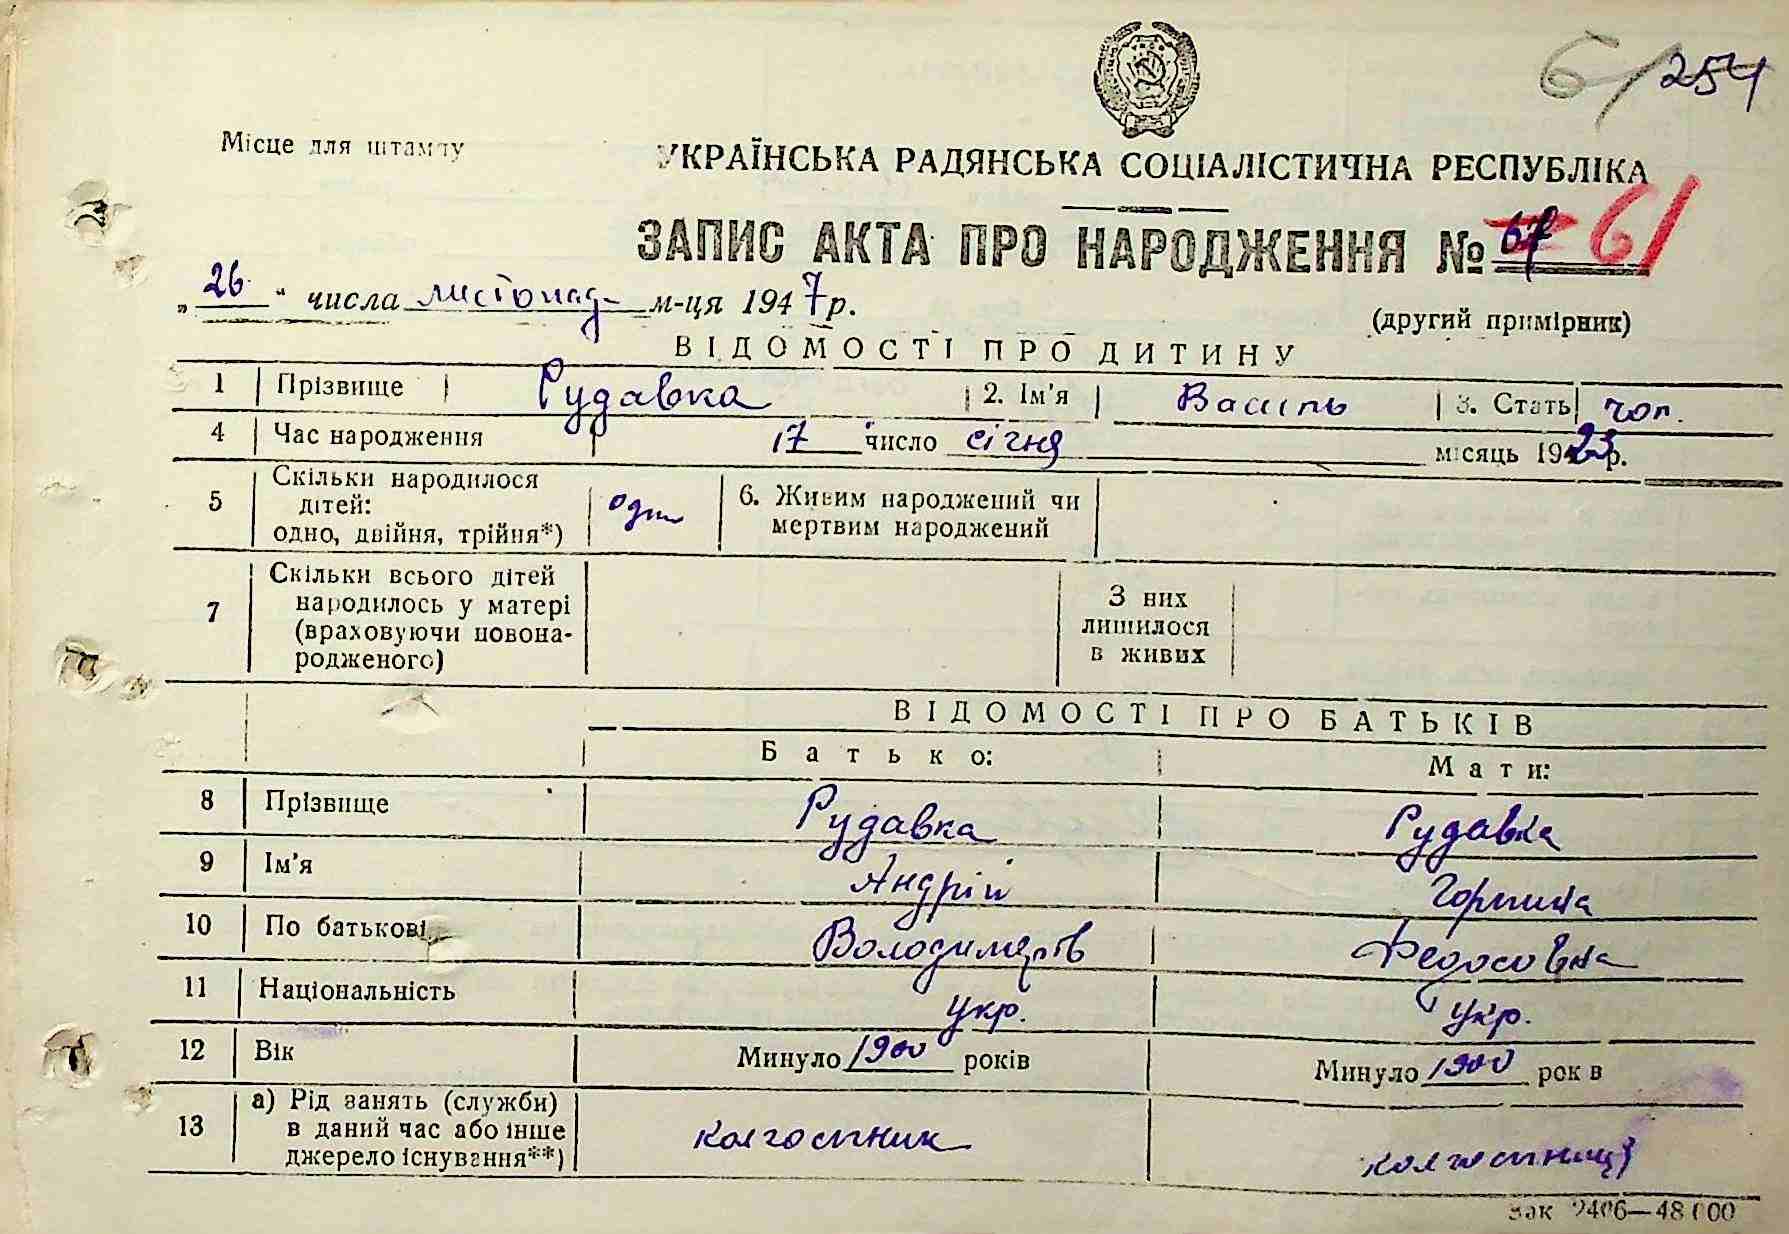 6/254
Місце для штампу
УКРАЇНСЬКА РАДЯНСЬКА СОЦІАЛІСТИЧНА РЕСПУБЛІКА
ЗАПИС АКТА ПРО НАРОДЖЕННЯ № 61
„26“ числа листопад м-ця 1947 р.
(другий примірник)
ВІДОМОСТІ ПРО ДИТИНУ
1 Прізвище Рудавка 2. Ім'я Василь 3. Стать чол.
4 Час народження 17 число січня місяць 1923 р.
5 Скільки народилося дітей: одно, двійня, трійня*) один 6. Живим народжений чи мертвим народжений
7 Скільки всього дітей народилось у матері (враховуючи новонародженого) З них лишилося в живих
ВІДОМОСТІ ПРО БАТЬКІВ
Батько: Мати:
8 Прізвище Рудавка Рудавка
9 Ім'я Андрій Горпина
10 По батькові Володимирів Федосовна
11 Національність укр. укр.
12 Вік Минуло 1900 років Минуло 1900 рок в
13 а) Рід занять (служби) в даний час або інше джерело існування**) колгоспник колгоспниця
Зак 2406—48000